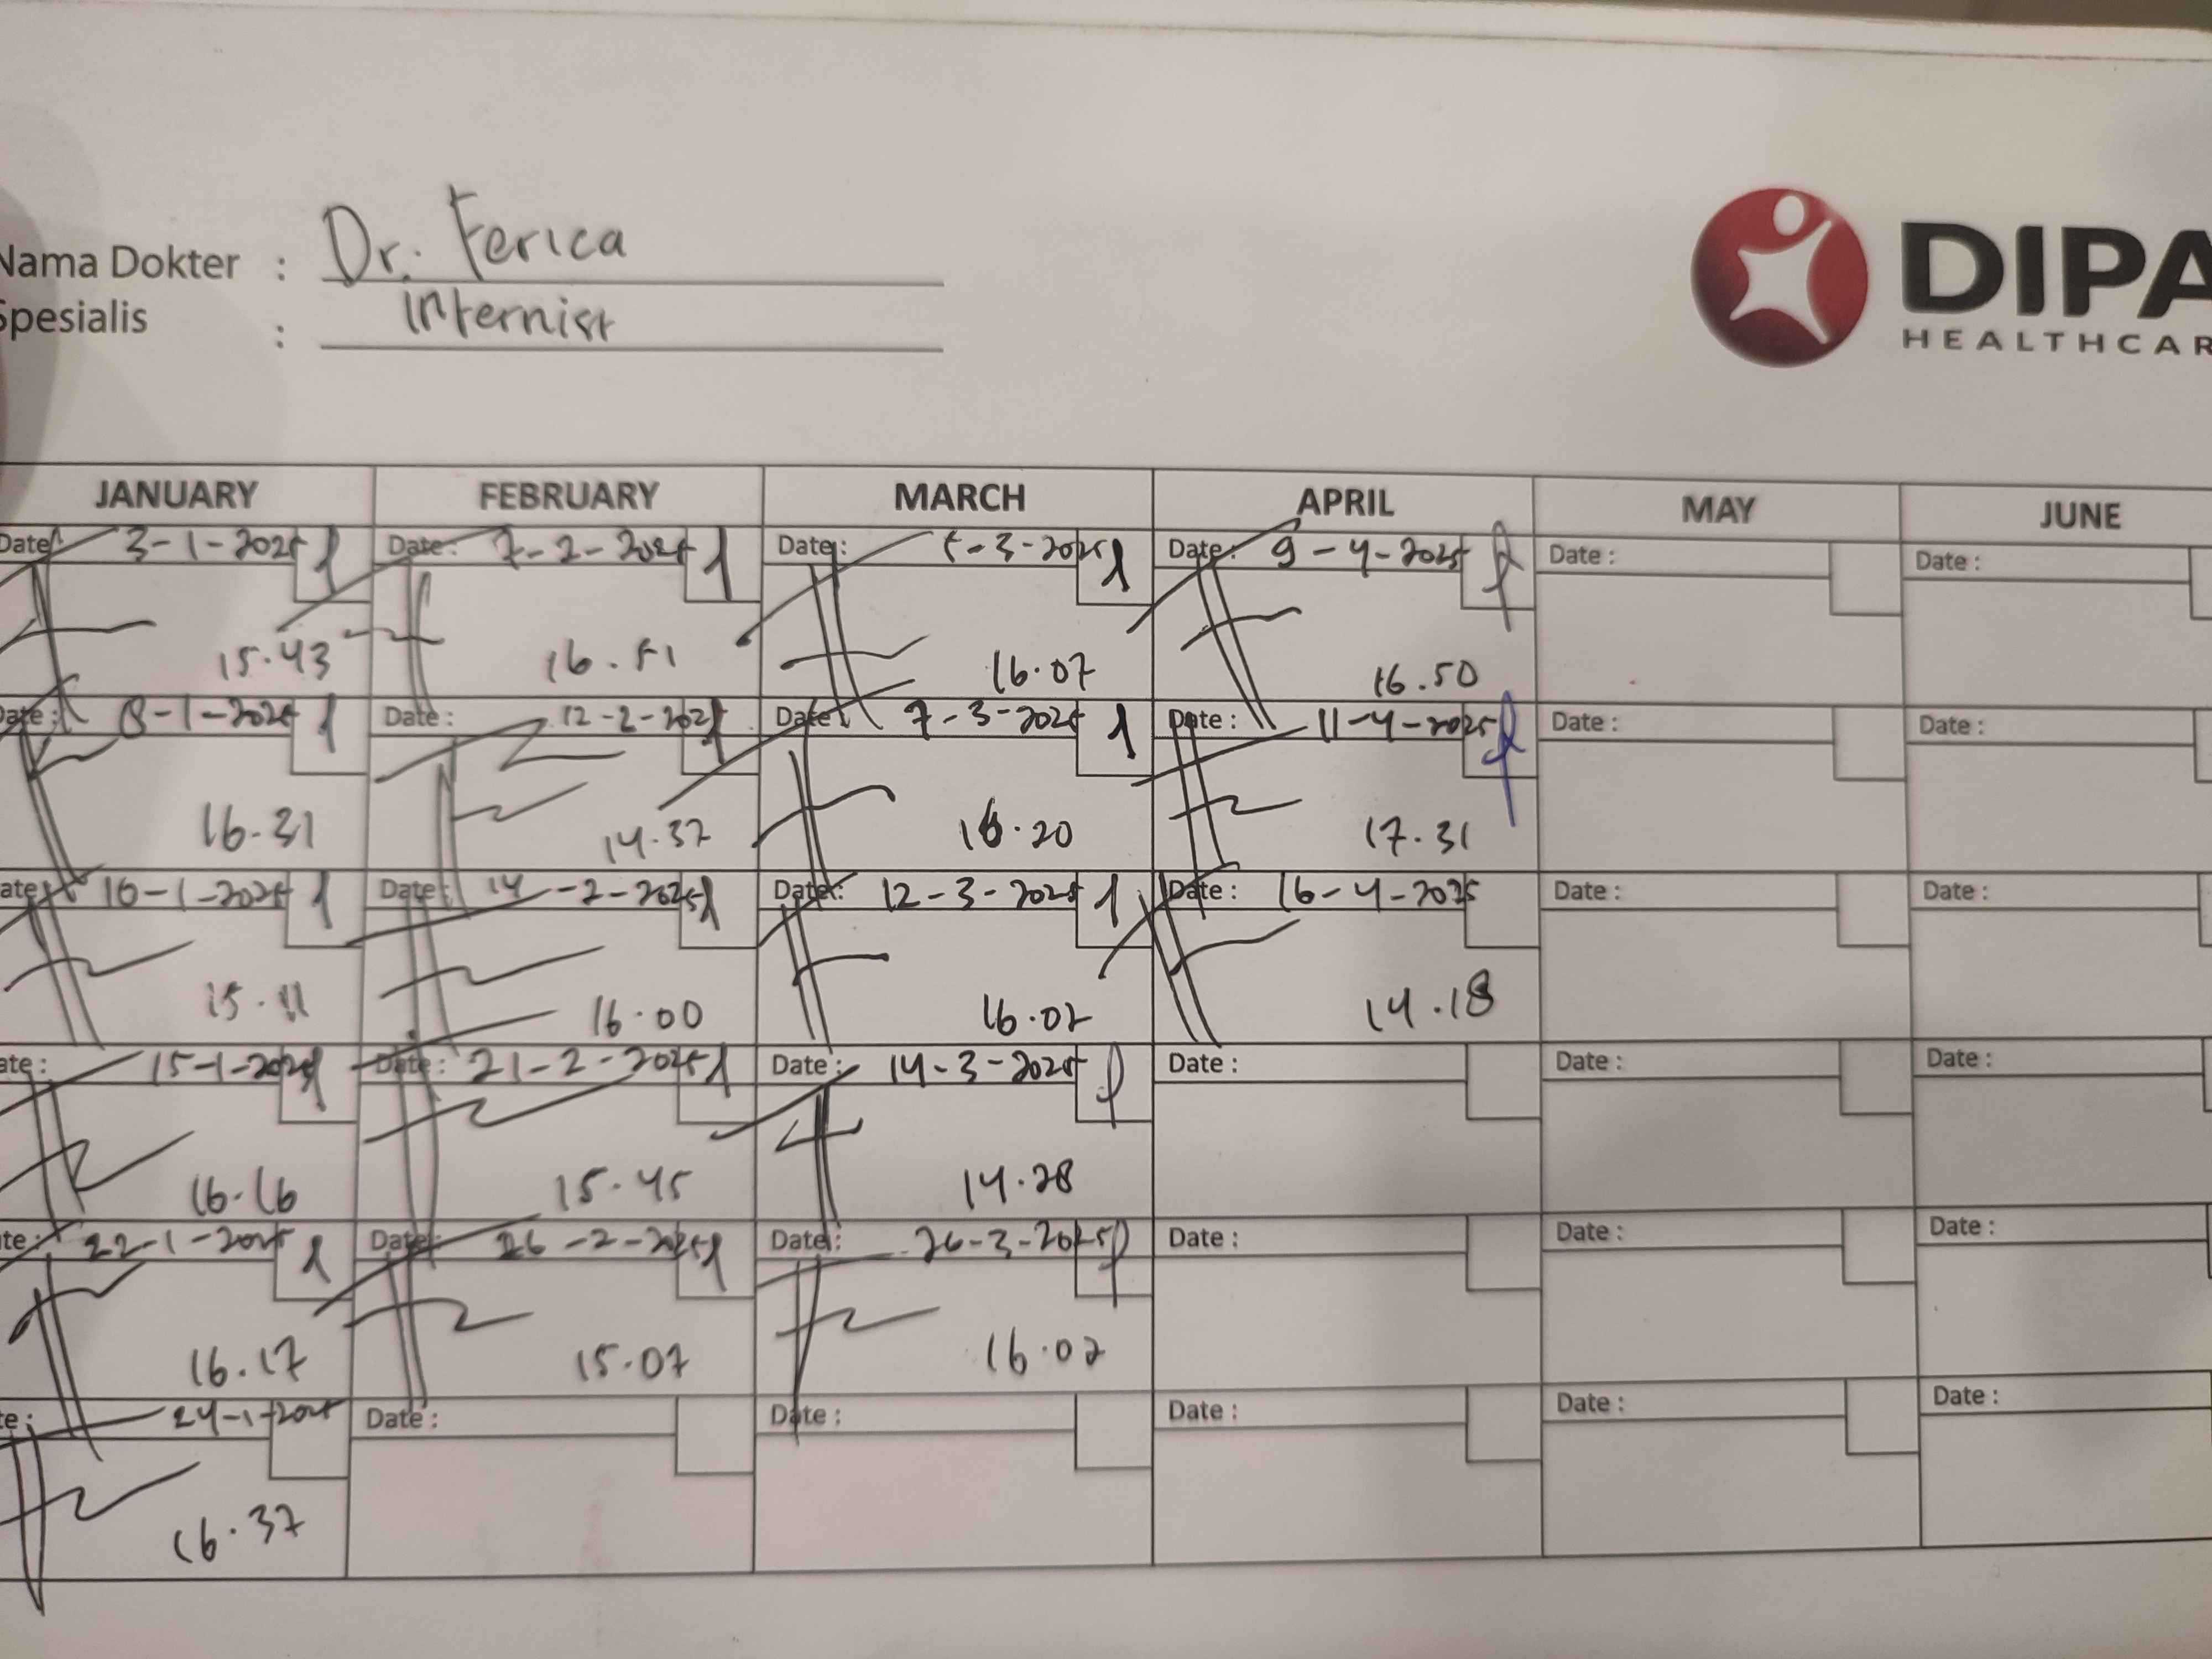 Nama Dokter : Dr. Ferica
Spesialis : Internist
DIPA
HEALTHCAR
JANUARY FEBRUARY MARCH APRIL MAY JUNE
Date 3-1-2025 Date: 7-2-2025 Date: 5-3-2025 Date: 9-4-2025 Date : Date :
15.43 16.51 16.07 16.50
Date: 8-1-2025 Date : 12-2-2025 Date 7-3-2025 Date : 11-4-2025 Date : Date :
16.31 14.37 16.20 17.31
ate 10-1-2025 Date: 14-2-2025 Date: 12-3-2025 Date : 16-4-2025 Date : Date :
15.11 16.00 16.02 14.18
ate : 15-1-2025 Date : 21-2-2025 Date : 14-3-2025 Date : Date : Date :
16.16 15.45 14.28
te : 22-1-2025 Date: 26-2-2025 Date : 26-3-2025 Date : Date : Date :
16.17 15.07 16.02
te : 24-1-2025 Date : Date : Date : Date : Date :
16.37